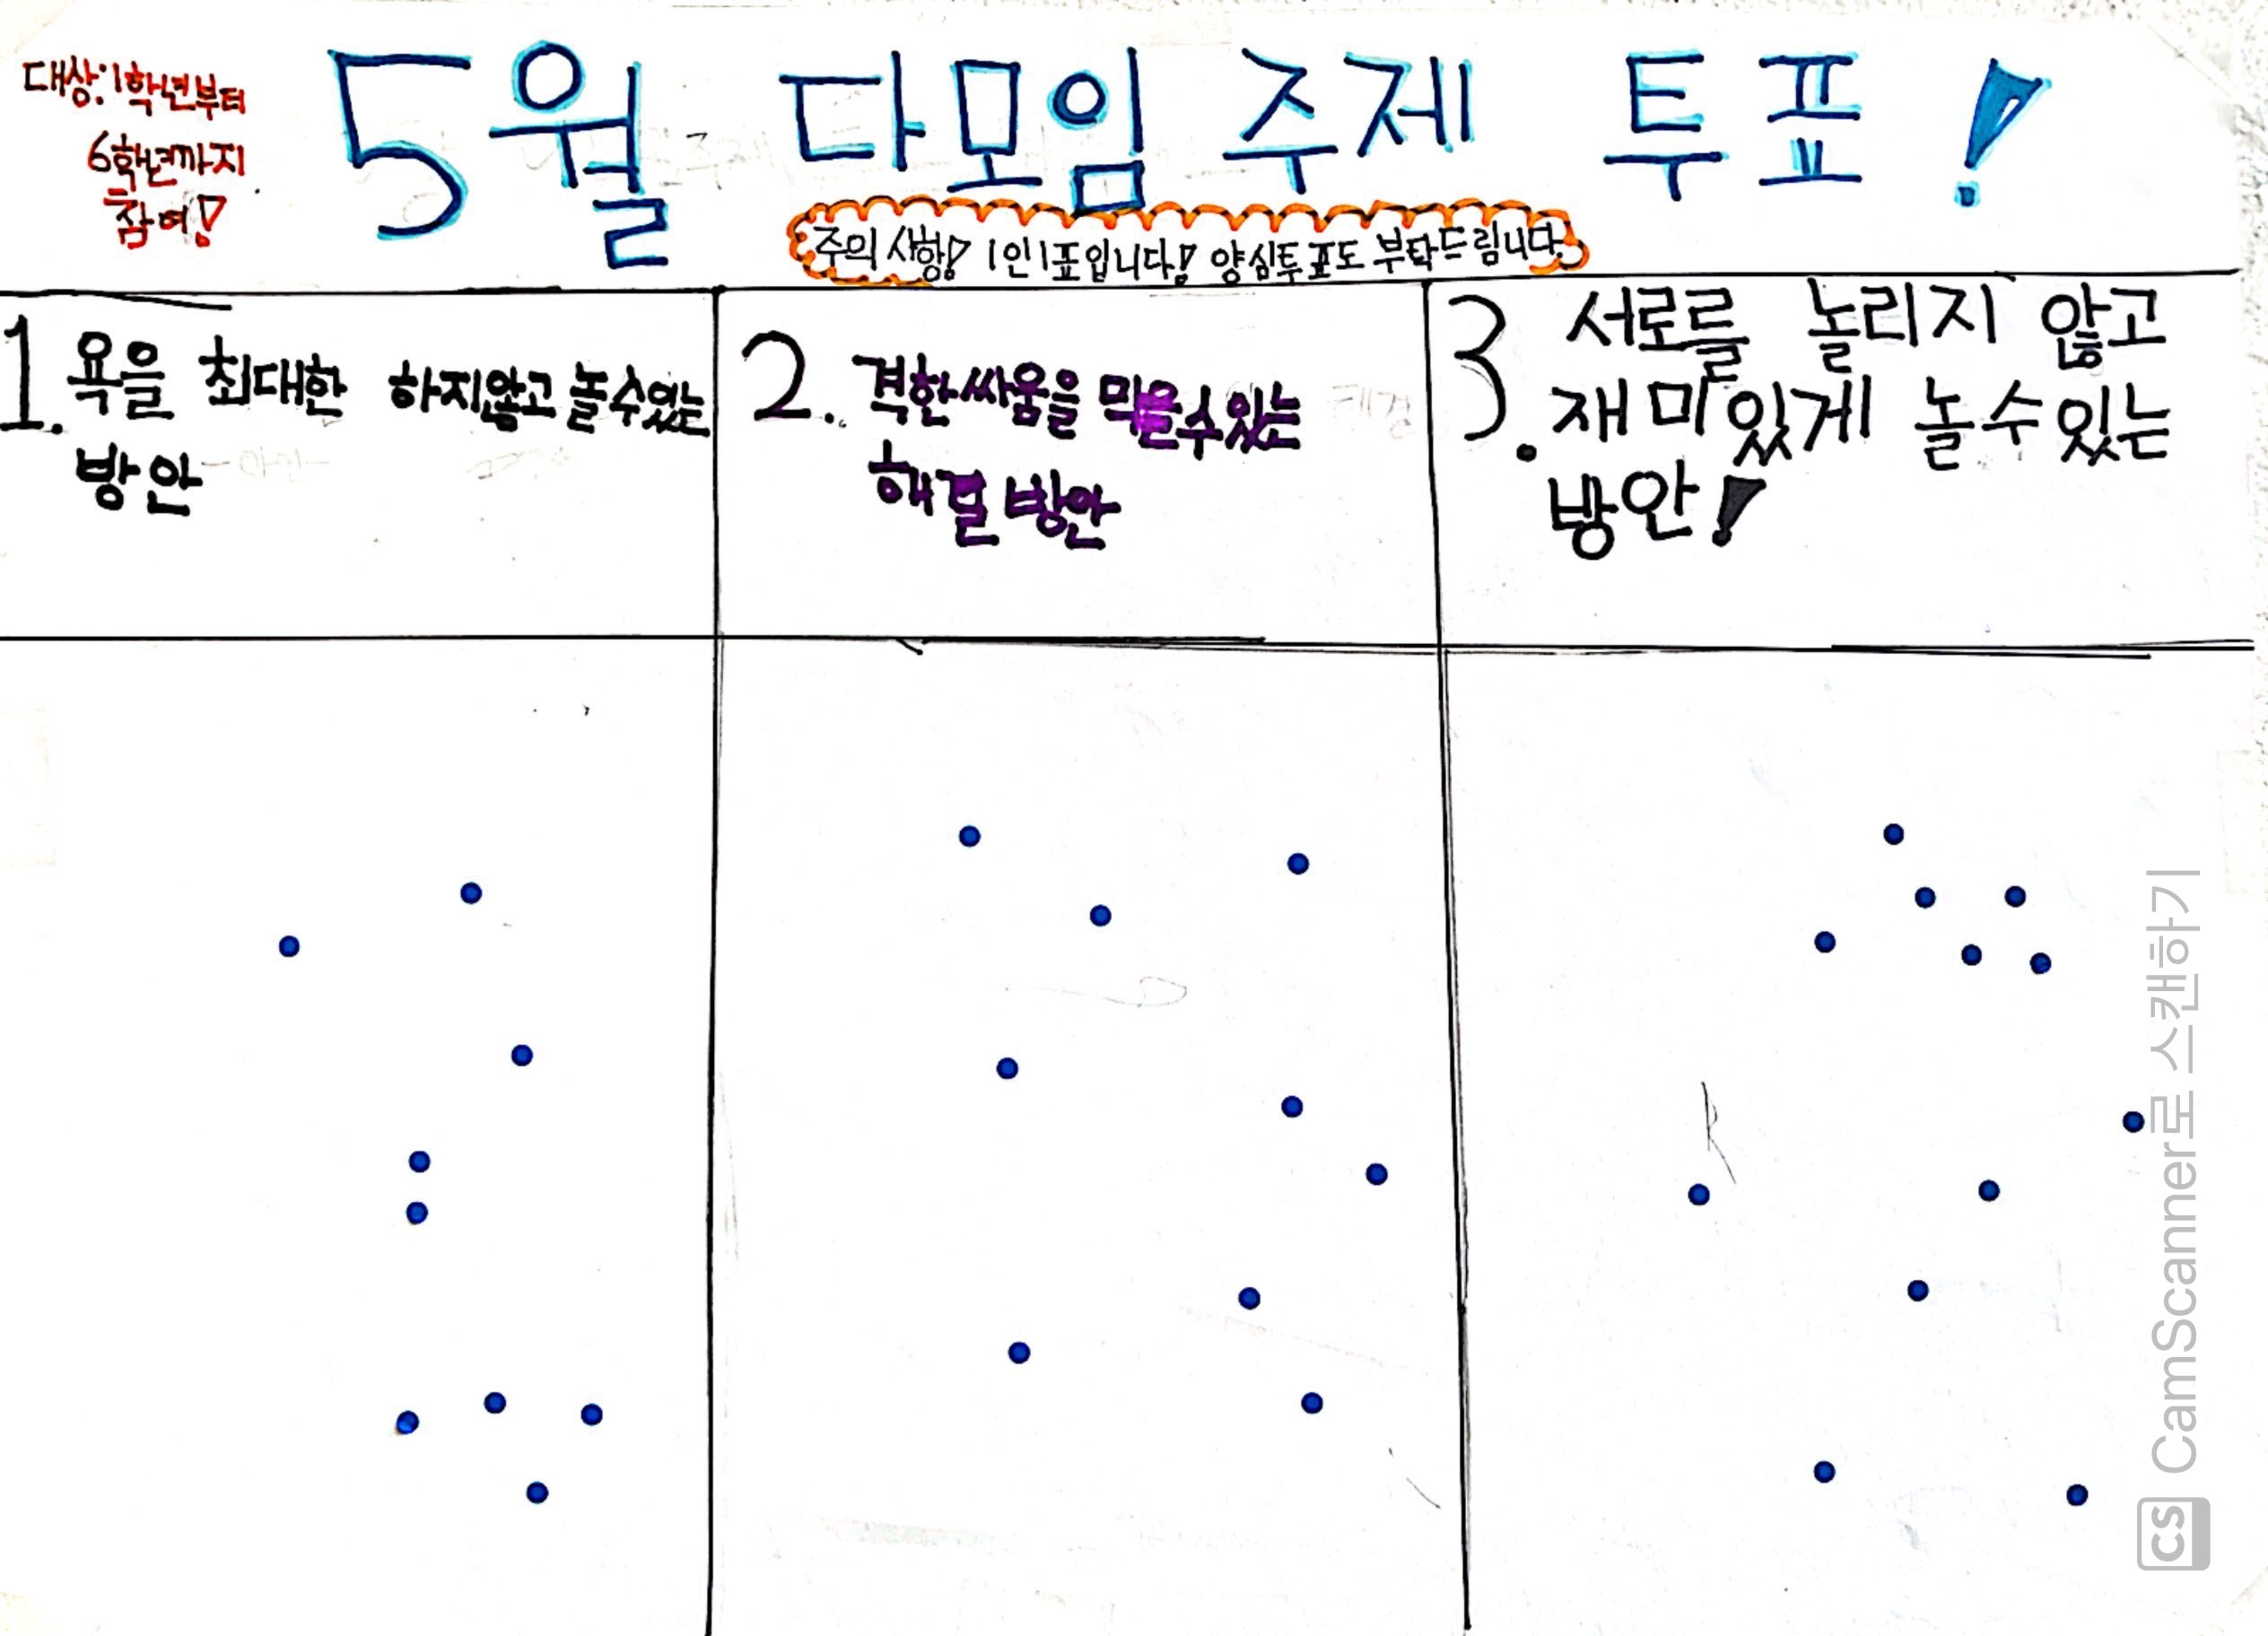 대상: 1학년부터
6학년까지
참여!
5월 다모임 주제 투표!
주의 사항! 1인 1표입니다! 양심투표도 부탁드립니다.
1. 욕을 최대한 하지않고 놀수있는
방안
2. 격한싸움을 막을수있는
해결 방안
3. 서로를 놀리지 않고
재미있게 놀수있는
방안!
CS CamScanner로 스캔하기